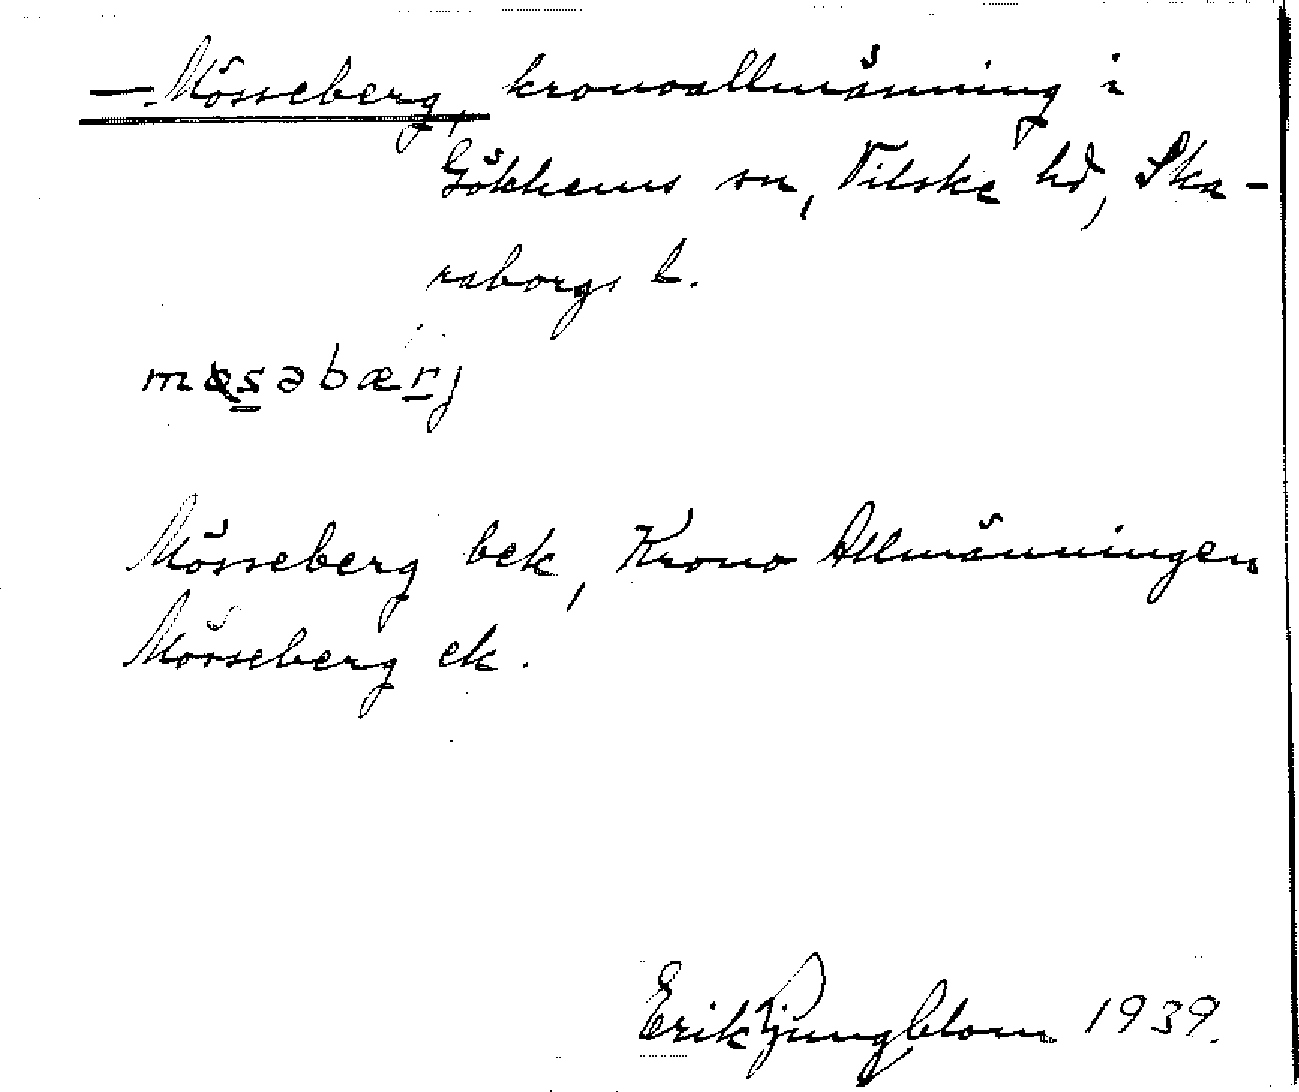 — Mösseberg, kronoallmänning i
Gökhems sn, Vilske hd, Ska-
raborgs l.
møsəbærj
Mösseberg bek, Krono Allmänningen
Mösseberg ek.
Erik Ljungblom 1939.